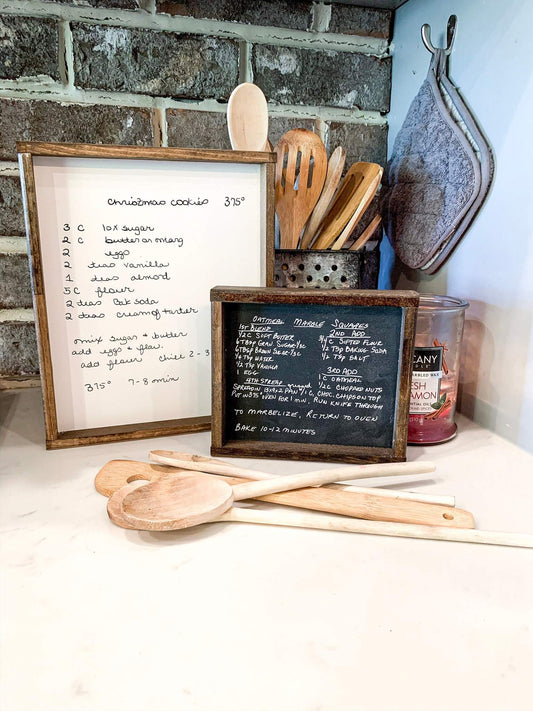 Christmas cookies 375°
3 C 10x sugar
2 C butter or marg
2 eggs
2 teas vanilla
1 teas almond
5 C flour
2 teas Bak soda
2 teas cream of tarter
mix sugar & butter
add eggs & flav.
add flour chill 2-3
375° 7-8 min
Oatmeal Marble Squares
1st Blend
1/2 C Soft Butter
6 Tbsp Gran Sugar
6 Tbsp Brown Sugar
1/4 Tsp Water
1/2 Tsp Vanilla
1 Egg
2nd Add
Sifted Flour
1/2 Tsp Baking Soda
1/2 Tsp Salt
3rd Add
1C Oatmeal
1/2 C Chopped Nuts
4th Spread
Spread in 13x9x2 Pan 1 C. Choc. Chips on Top
Put in 375° Oven for 1 min, Run knife through
to marbelize, Return to oven
Bake 10-12 minutes